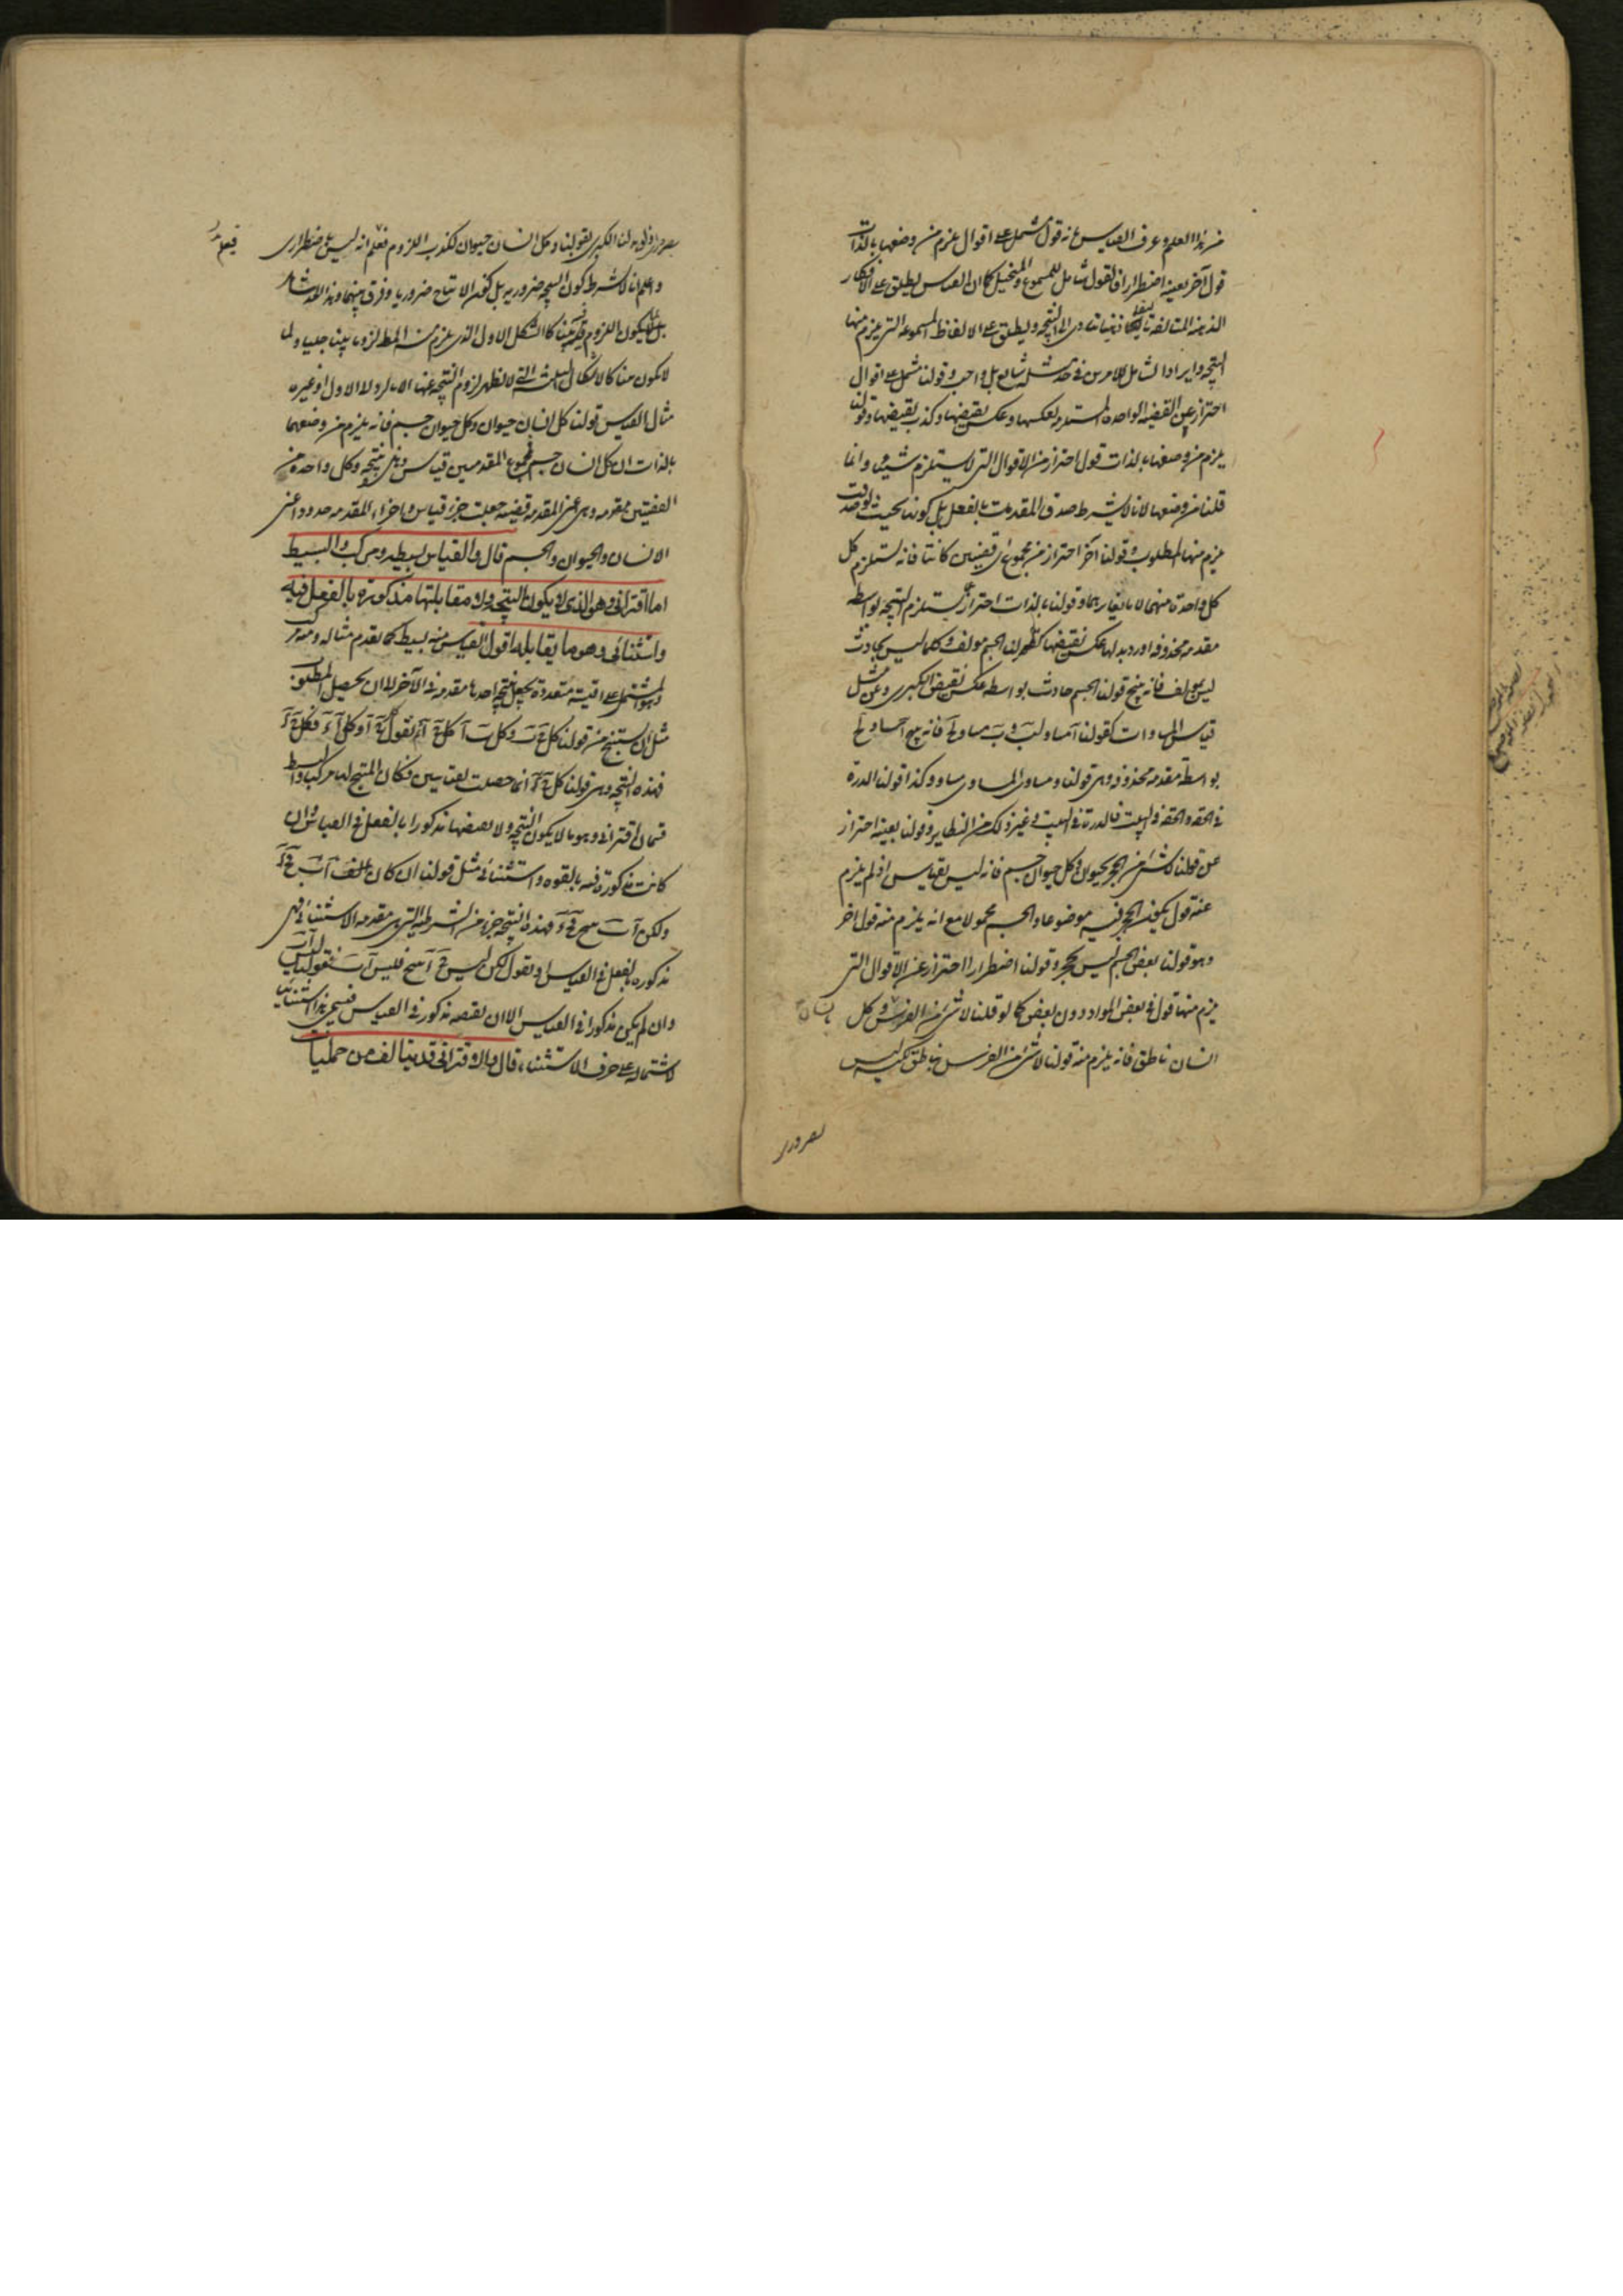 من هذا العلم وعرف القياس بانه قول مشتمل على اقوال يلزم من وضعها بالذات
قول آخر بعينه اضطرارا فالقول شامل للمسموع والمتخيل كما ان القياس يطلق على الافكار
الذهنية المتالفة ذهنيات وى الى النتيجه ويطلق على الالفاظ المسموعه التي يلزم منها
النتيجه وايراد الشامل للامرين في حد مثله شايع بل واجب وقولنا مشتمل على اقوال
احتراز عن القضيه الواحده المستلزمه لعكسها وعكس نقيضها وكذب نقيضها وقولنا
يلزم من وضعها بالذات قول احتراز من الاقوال التي لا يستلزم شيئا وانما
قلنا من وضعها لانا لا نشترط صدق المقدمات بالفعل بل كونها بحيث لو صدقت
يلزم منها المطلوب وقولنا آخر احتراز من مجموع اي قضيتين كانتا فانه يستلزم كل
كل واحدة منهما لا يغايرهما وقولنا بالذات احتراز عما يستلزم النتيجه بواسطه
مقدمه محذوفه اورد بدلها عكس نقيضها كقولنا الجسم مولف وكلما ليس بحادث
ليس بمولف فانه ينتج قولنا الجسم حادث بواسطه عكس نقيض الكبرى وعن مثل
قياس المساوات كقولنا آ مساو لب وب مساو لج فانه ينتج آ مساو لج
بواسطة مقدمه محذوفه وهى قولنا ومساوى المساوى مساو وكذا قولنا الدرة
في الحقه والحقه في البيت فالدرة في البيت في غير ذلك من النظاير وقولنا بعينه احتراز
عن قولنا لا شئ من الحجر بحيوان وكل حيوان جسم فانه ليس بقياس اذ لم يلزم
عنه قول يكون الحجر فيه موضوعا والجسم محمولا مع انه يلزم منه قول اخر
وهو قولنا بعض الجسم ليس بحجر وقولنا اضطرارا احتراز عن الاقوال التي
يلزم منها قول في بعض المواد دون بعض كما لو قلنا لا شئ من الفرس وكل
انسان ناطق فانه يلزم منه قولنا لا شئ من الفرس بناطق ليس
بضرورى
بضرورى ولو بدلنا الكبرى بقولنا وكل انسان حيوان لكذب اللزوم فعلم انه ليس باضطرارى
واعلم انا لا نشترط كون النتيجه ضروريه بل كون الانتاج ضروريا وفرق بينهما وهذا
يكون اللزوم فيه بينا كالشكل الاول الذى يلزم منه المط لزوما بينا جليا ولما
لا يكون بينا كالاشكال الثلثه التي لا يظهر لزوم النتيجه عنها الا بالرد الى الاول او غيره
مثال القياس قولنا كل انسان حيوان وكل حيوان جسم فانه يلزم من وضعهما
بالذات ان كل انسان جسم فمجموع المقدمتين قياس وهذه نتيجه وكل واحده من
القضيتين مقدمه وهى اعنى المقدمه قضيه جعلت جزء قياس واجزاء المقدمه حدود اعنى
الانسان والحيوان والجسم قال والقياس بسيط ومركب والبسيط
اما اقترانى وهو الذى لا يكون النتيجه ولا مقابلتها مذكورة بالفعل فيه
واستثنائى وهو ما يقابله اقول القياس منه بسيط كما تقدم مثاله ومنه مركب
وهو المشتمل على اقيسة متعددة يجعل نتيجه احدها مقدمة في الآخر الى ان يحصل المطلوب
مثل ان يستنتج من قولنا كل ج ب وكل ب آ كل ج آ ثم نقول كل ج آ وكل آ د فكل ج د
فهذه النتيجه وهى قولنا كل ج د انما حصلت بقياسين فكان المنتج لها مركبا والبسيط
قسمان اقترانى وهو ما لا يكون النتيجه ولا نقيضها مذكورا بالفعل في القياس وان
كانت مذكورة فيه بالقوه واستثنائى مثل قولنا ان كان آ ب ف ج د
ولكن آ ب ينتج ج د فهذه النتيجه جزء من الشرطيه التي هى مقدمه الاستثنائى فهى
مذكوره بالفعل في القياس او نقول لكن ليس ج د ينتج فليس آ ب فقولنا ليس آ ب
وان لم يكن مذكورا في القياس الا ان نقيضه مذكور في القياس فسمى هذا استثنائيا
لاشتماله على حرف الاستثناء قال والاقترانى قد يتالف من حمليات